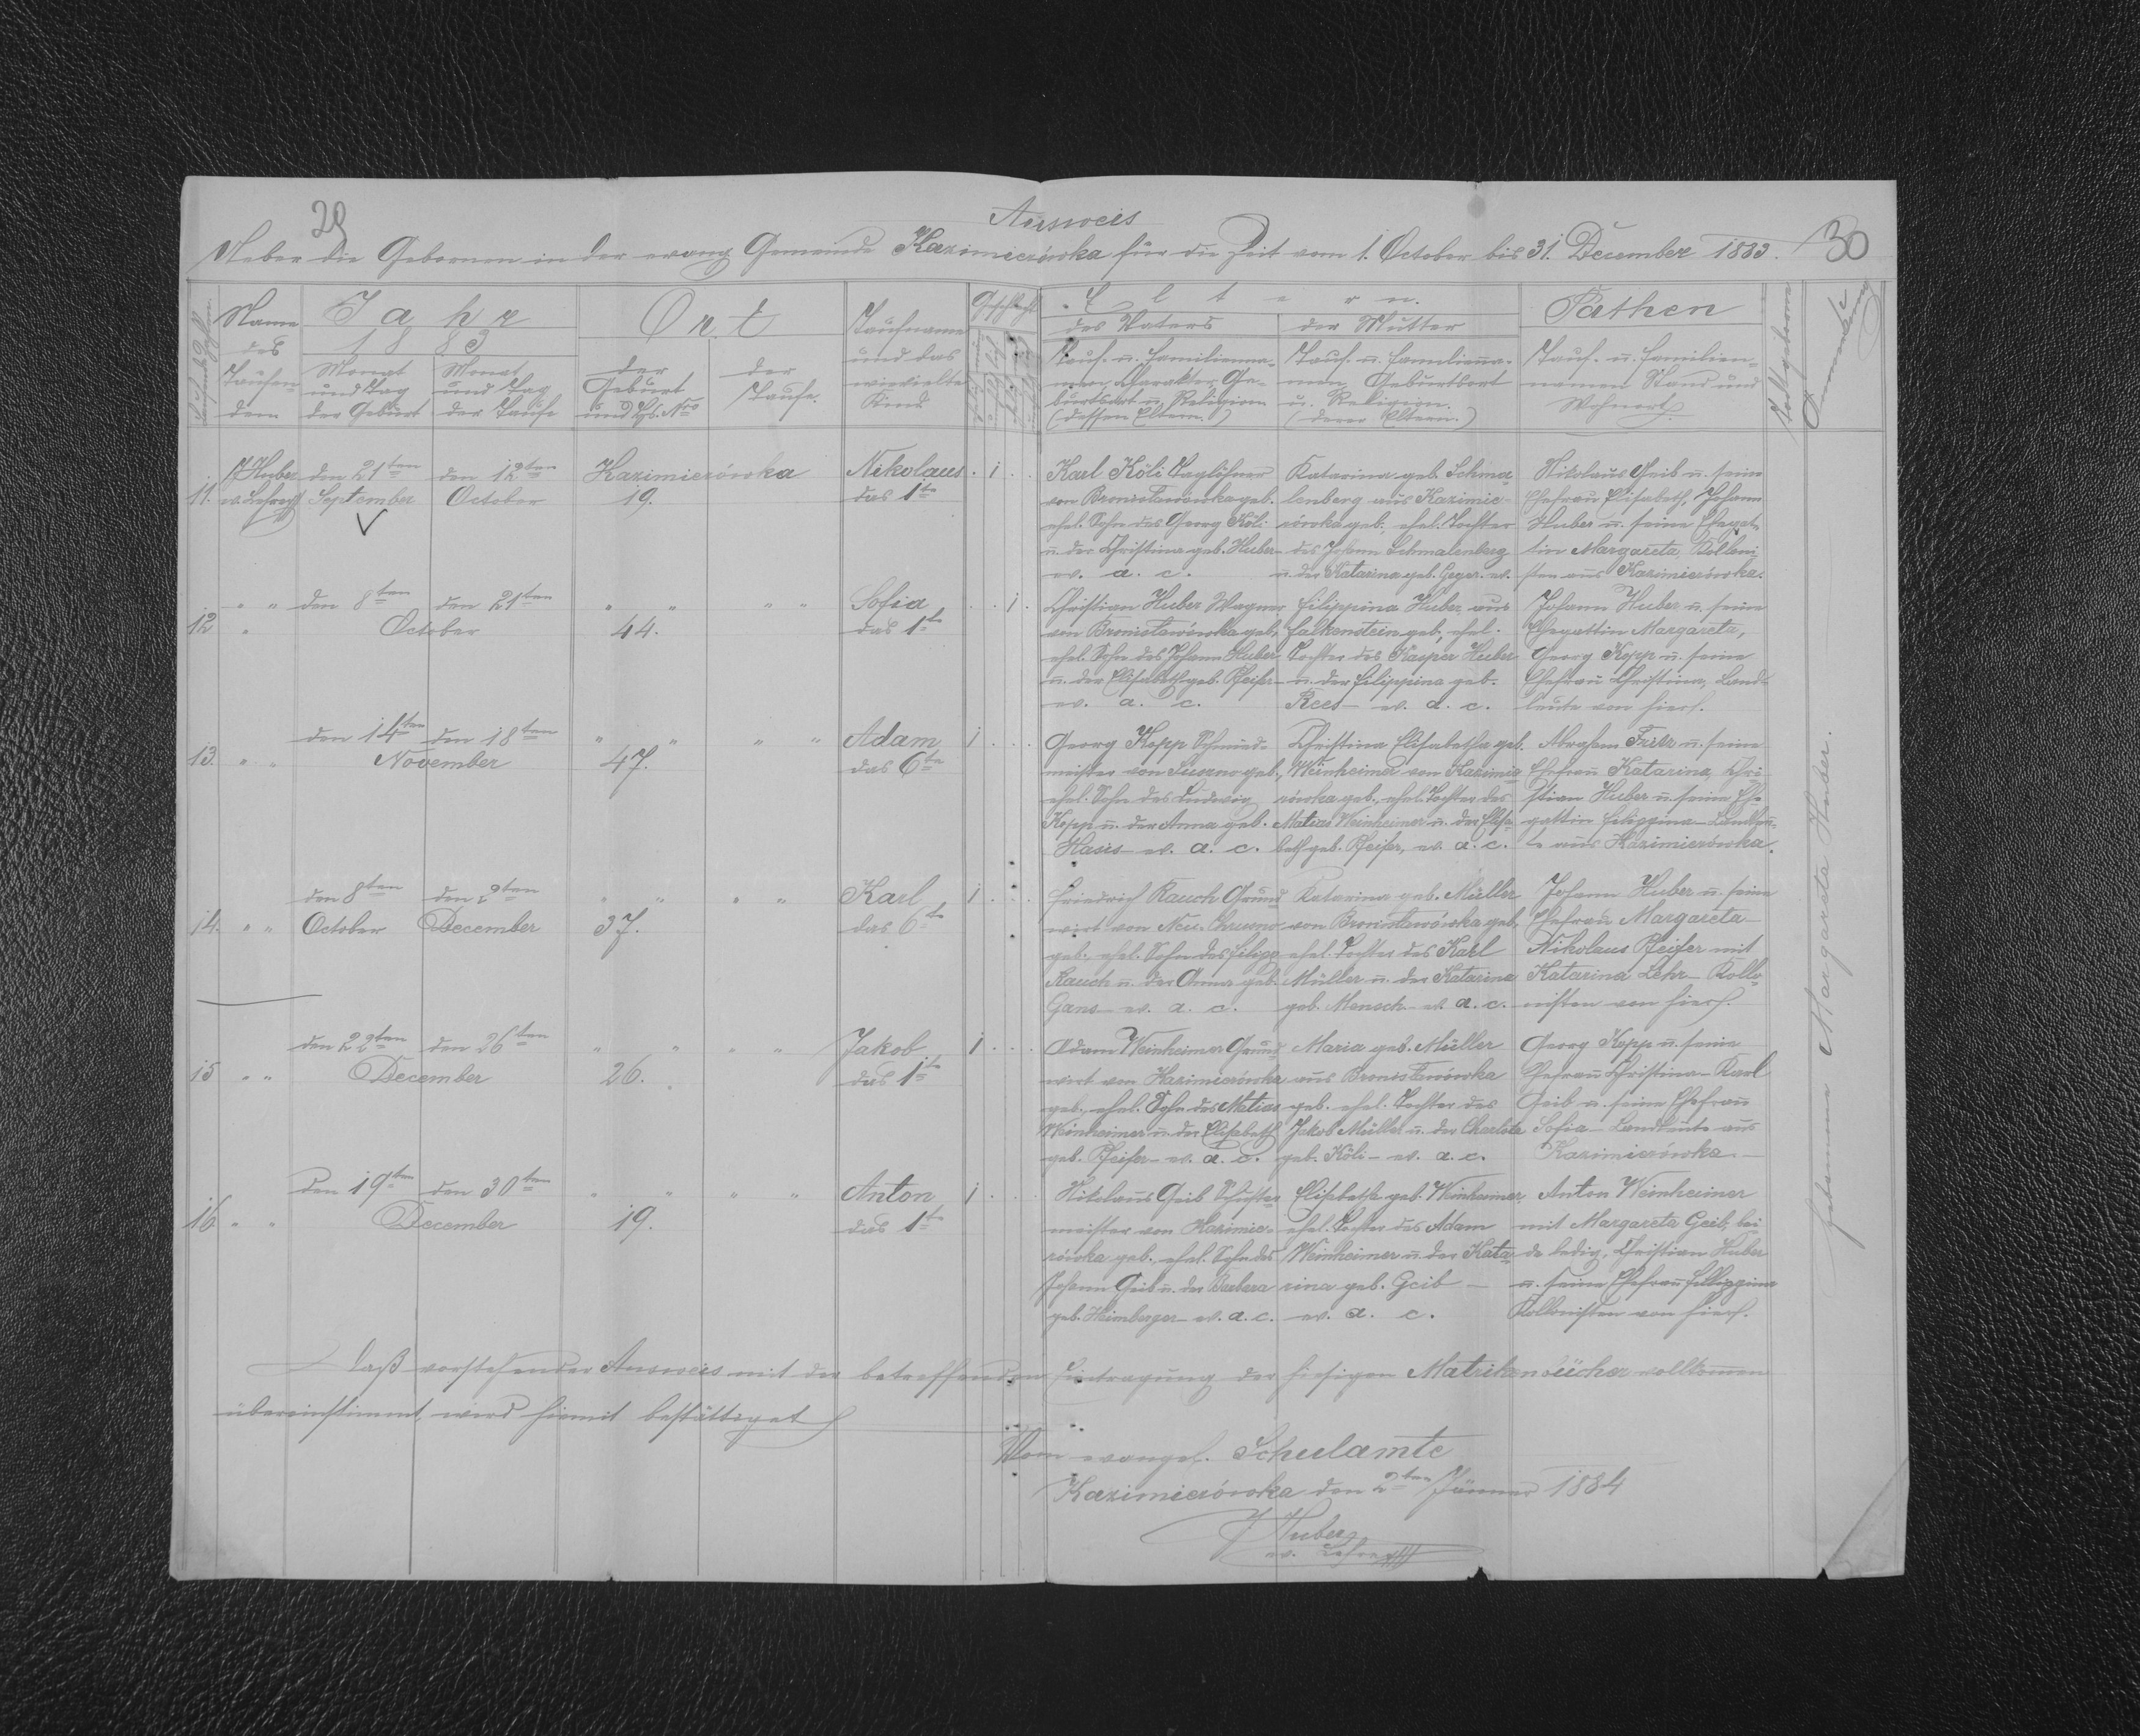 29
30
Ausweis
Ueber die Gebornen in der evang Gemeinde Kazimierówka für die Zeit vom 1. October bis 31. December 1883.
Laufende Zahlen
Name des Taufen-dem
Jahr
1883
Monat und Tag der Geburt
Monat und Tag der Taufe
Ort
der Geburt und Hs. Nro
der Taufe.
Taufname und das wievielte Kind
Geschlecht
Eltern.
des Vaters
Tauf- u. Familienna-
men, Charakter Ge-
burtsort u. Religion
(dessen Eltern.)
der Mutter
Tauf- u. Familienna-
men, Geburtsort
u. Religion.
(deren Eltern.)
Pathen
Tauf- u. Familien-
namen Stand und
Wohnort
Anmerkung
11.
J Huber
ev. Lehrer
den 21ten
September
den 12ten
October
Kazimierówka
19.
Nikolaus
das 1te
1
Karl Köli Taglöhner
von Bronisławówka geb.
ehel. Sohn des Georg Köli
u. der Christina geb. Huber
ev. a. c.
Katarina geb. Schma-
lenberg aus Kazimie-
rówka geb. ehel. Tochter
des Johann Schmalenberg
u. der Katarina geb. Geyer. ev.
Nikolaus Geib u. seine
Ehefrau Elisabeth, Johann
Huber u. seine Ehegat-
tin Margareta, Koloni-
sten aus Kazimierówka.
12
" "
"
den 8ten
den 21ten
October
" "
44.
" "
Sofia
das 1te
1
Christian Huber Wagner
von Bronisławówka geb.
ehel. Sohn des Johann Huber
u. der Elisabeth geb. Pfeifer
ev. a. c.
Filippina Huber aus
Falkenstein geb., ehel.
Tochter des Kasper Huber
u. der Filippina geb.
Rees - ev. a. c.
Johann Huber u. seine
Ehegattin Margareta,
Georg Kopp u. seine
Ehefrau Christina, Land-
leute von hier.
13.
" "
den 14ten
den 18ten
November
" "
47.
" "
Adam
das 6te
1
Georg Kopp Schmied-
meister von Suszno geb.,
ehel. Sohn des Ludwig
Kopp u. der Anna geb.
Hasis - ev. a. c.
Christina Elisabetha geb.
Weinheimer von Kazimie-
rówka geb., ehel. Tochter des
Matias Weinheimer u. der Elisa-
beth geb. Pfeifer, ev. a. c.
Abraham u. seine
Ehefrau Katarina, Chri-
stian Huber u. seine Ehe-
gattin Filippina - Landleu-
te aus Kazimierówka.
14.
" "
den 8ten
October
den 2ten
December
" "
37.
" "
Karl
das 6te
1
Friedrich Rauch Grund-
wirt von Neu-Chrusno
geb. ehel. Sohn des Filipp
Rauch u. der Anna geb.
Gans - ev. a. c.
Katarina geb. Müller
von Bronisławówka geb.
ehel. Tochter des Karl
Müller u. der Katarina
geb. Mensch - ev. a. c.
Johann Huber u. seine
Ehefrau Margareta -
Nikolaus Pfeifer mit
Katarina Lehr - Kollo-
nisten von hier.
15
" "
den 22ten
den 26ten
December
" "
26.
" "
Jakob
das 1te
1
Adam Weinheimer Grund-
wirt von Kazimierówka
geb. ehel. Sohn des Matias
Weinheimer u. der Elisabeth
geb. Pfeifer - ev. a. c.
Maria geb. Müller
aus Bronisławówka
geb. ehel. Tochter des
Jakob Müller u. der Charlote
geb. Köli - ev. a. c.
Georg Kopp u. seine
Ehefrau Christina - Karl
Geib u. seine Ehefrau
Sofia - Landleute aus
Kazimierówka -
16
" "
den 19ten
den 30ten
December
" "
19.
" "
Anton
das 1te
1
Nikolaus Geib Schuster-
meister von Kazimie-
rówka geb., ehel. Sohn des
Johann Geib u. der Barbara
geb. Heimberger - ev. a. c.
Elisabetha geb. Weinheimer,
ehel. Tochter des Adam
Weinheimer u. der Kata-
rina geb. Geib -
ev. a. c.
Anton Weinheimer
mit Margareta Geib, bei-
de ledig, Christian Huber
u. seine Ehefrau Filippina
Kollonisten von hier.
Hebamme Margareta Huber.
Daß vorstehender Ausweis mit der betreffenden Eintragung der hiesigen Matrikenbücher vollkommen
übereinstimmt, wird hiemit bestättiget
Vom evangel. Schulamte
Kazimierówka den 2ten Jänner 1884
J Huber
ev. Lehrer